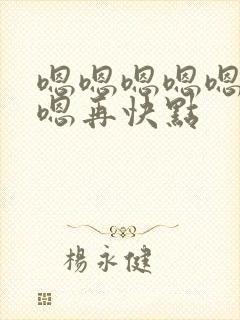 嗯嗯嗯嗯嗯
嗯再快點
楊永健